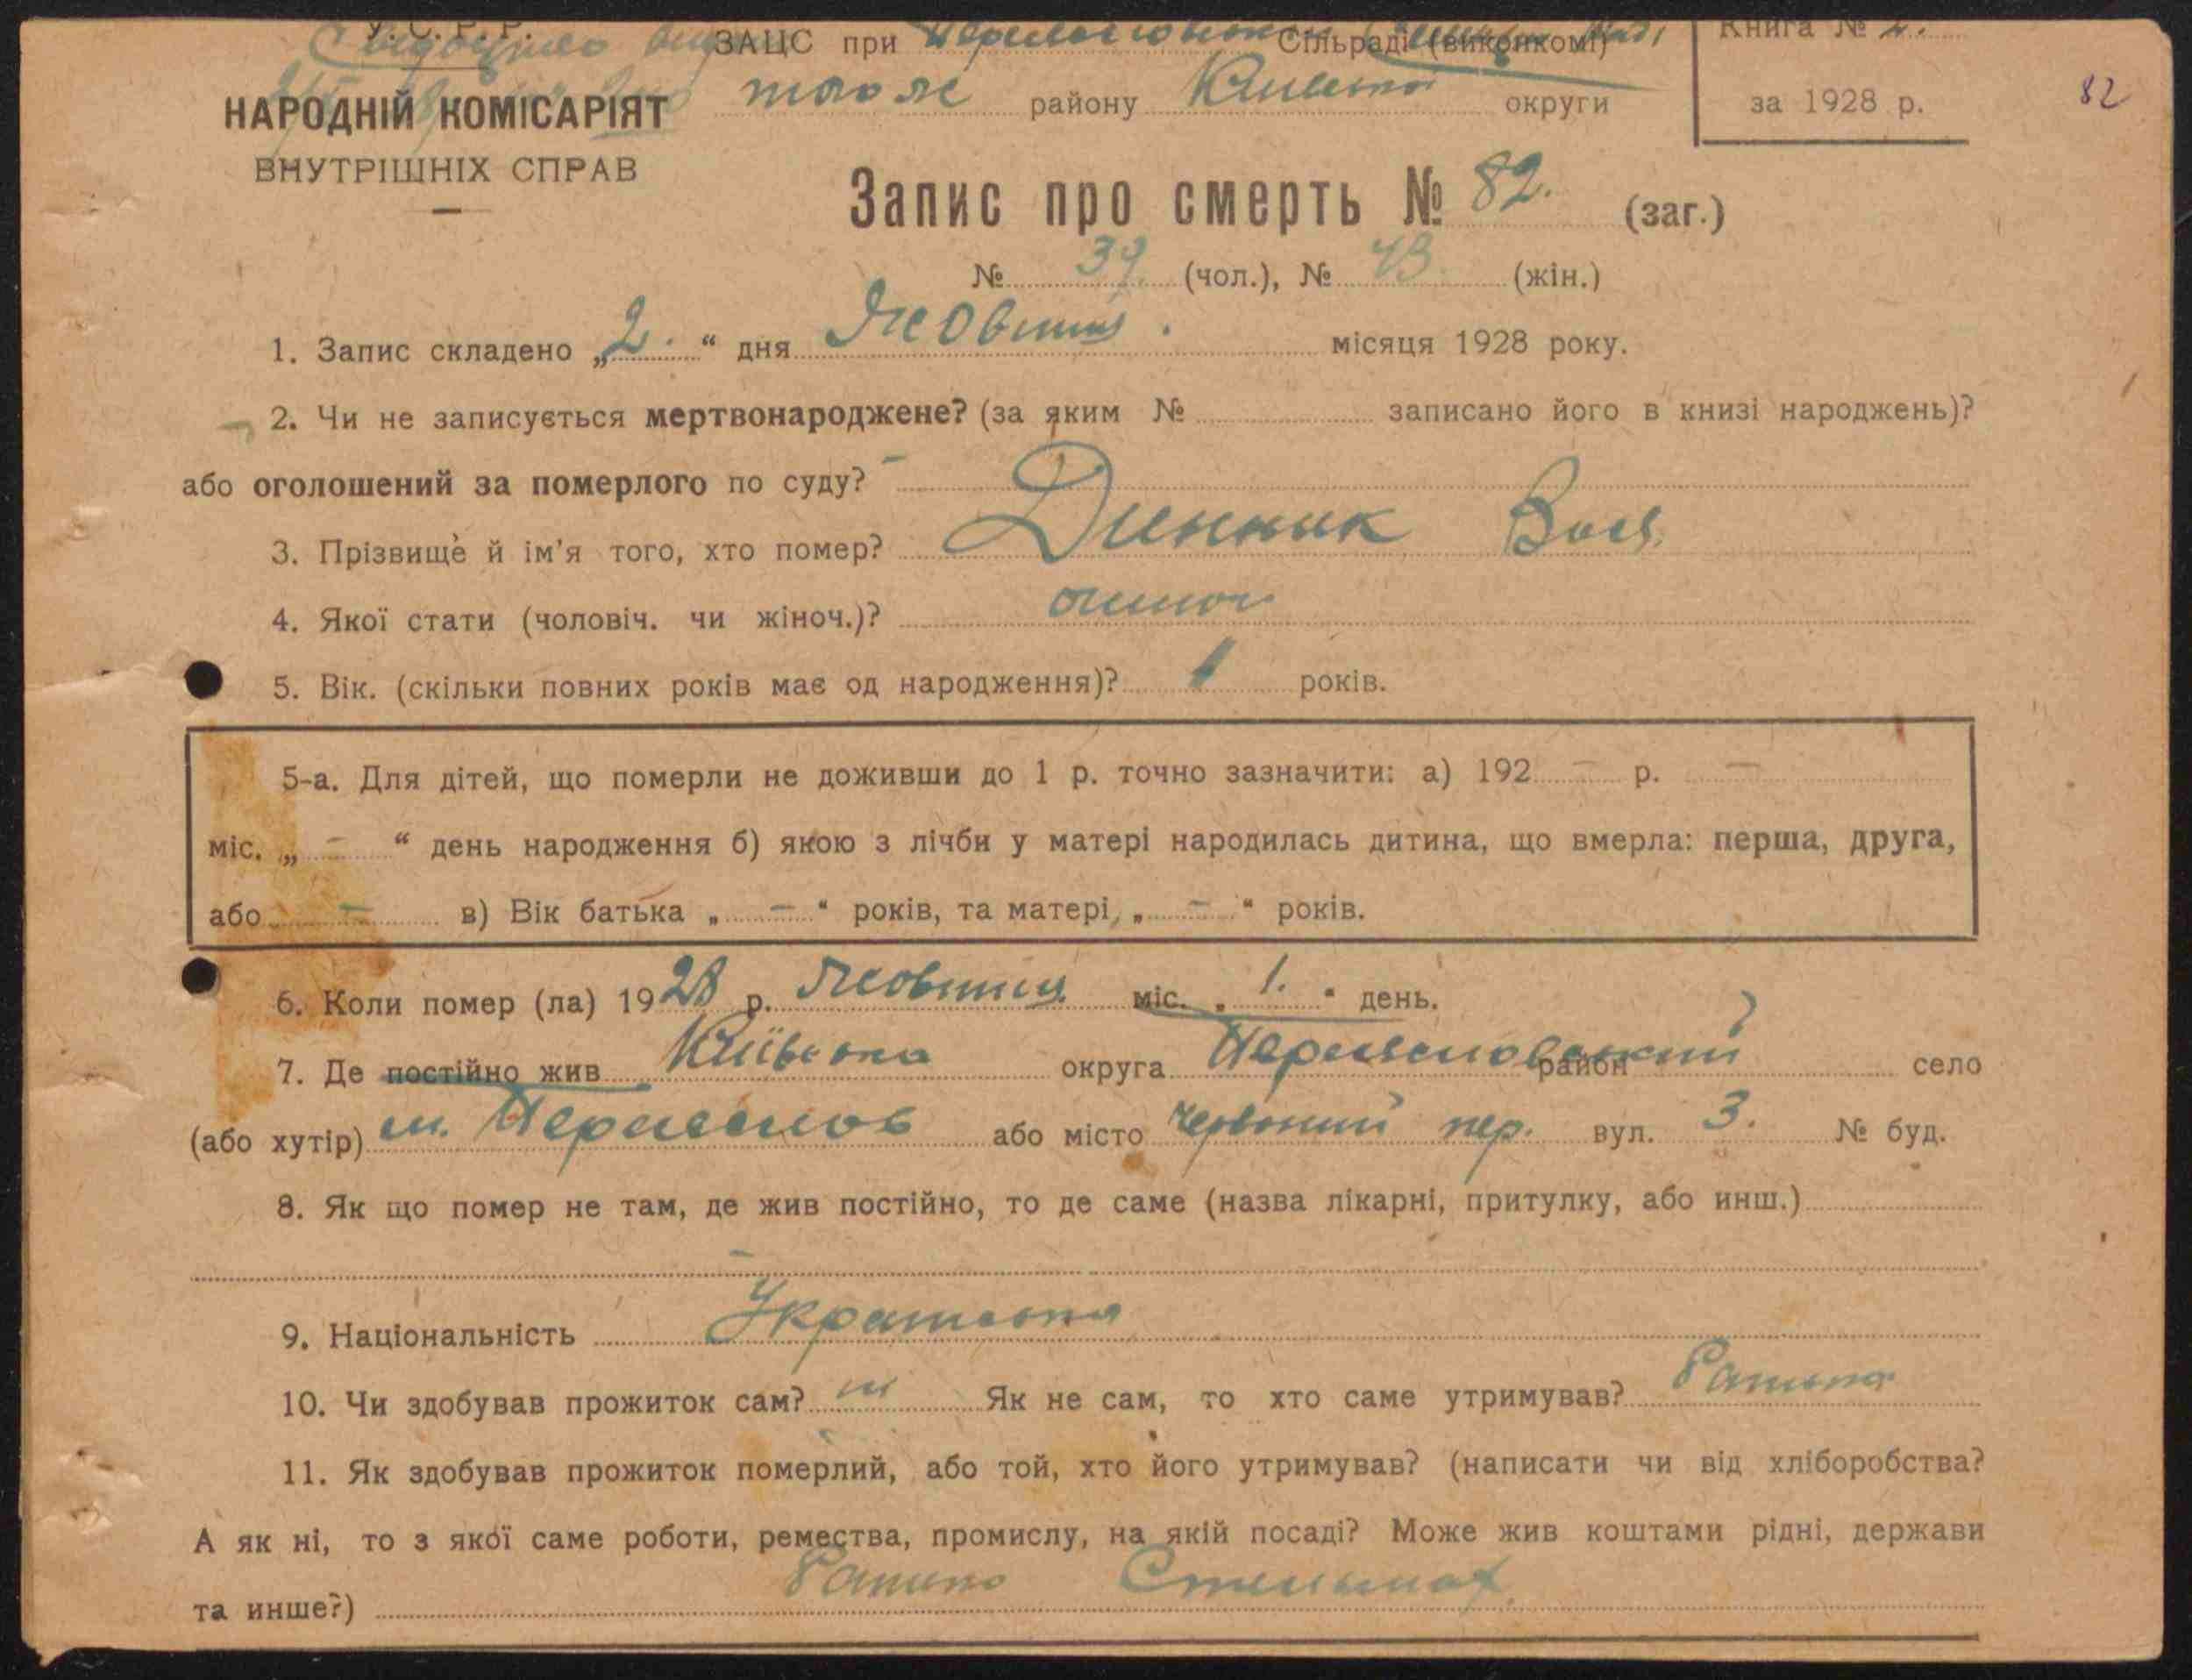 У. С. Р. Р. ЗАЦС при Сільраді (виконкомі) Книга № 2.
НАРОДНІЙ КОМІСАРІЯТ також району Київської округи за 1928 р. 82
ВНУТРІШНІХ СПРАВ
Запис про смерть № 82. (заг.)
№ 39. (чол.), № 43. (жін.)
1. Запис складено „2.“ дня Жовтня. місяця 1928 року.
2. Чи не записується мертвонароджене? (за яким № записано його в книзі народжень)?
або оголошений за померлого по суду? –
3. Прізвище й ім'я того, хто помер? Динник
4. Якої стати (чоловіч. чи жіноч.)?
5. Вік. (скільки повних років має од народження)? 1 років.
5-а. Для дітей, що померли не доживши до 1 р. точно зазначити: а) 192 – р. –
міс. „ – “ день народження б) якою з лічби у матері народилась дитина, що вмерла: перша, друга,
або – в) Вік батька „ – “ років, та матері, „ – “ років.
6. Коли помер (ла) 1928 р. Жовтня міс. „ 1. “ день.
7. Де постійно жив Київська округа Переяславський район село
(або хутір) м. Переяслов або місто Червоний пер. вул. 3. № буд.
8. Як що помер не там, де жив постійно, то де саме (назва лікарні, притулку, або инш.)
–
9. Національність Українська
10. Чи здобував прожиток сам? ні Як не сам, то хто саме утримував? Батько
11. Як здобував прожиток померлий, або той, хто його утримував? (написати чи від хліборобства?
А як ні, то з якої саме роботи, ремества, промислу, на якій посаді? Може жив коштами рідні, держави
та инше?) Батько Стельмах.